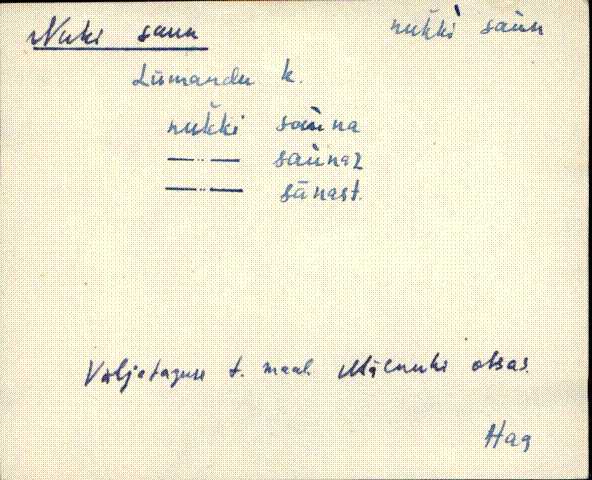 Nuki saun nuk̆ki saùn
Lümandu k.
nuk̆ki saùna
—··— saùnaz
—··— sānast.
Väljataguse t. maal. Mäenuki otsas.
Hag